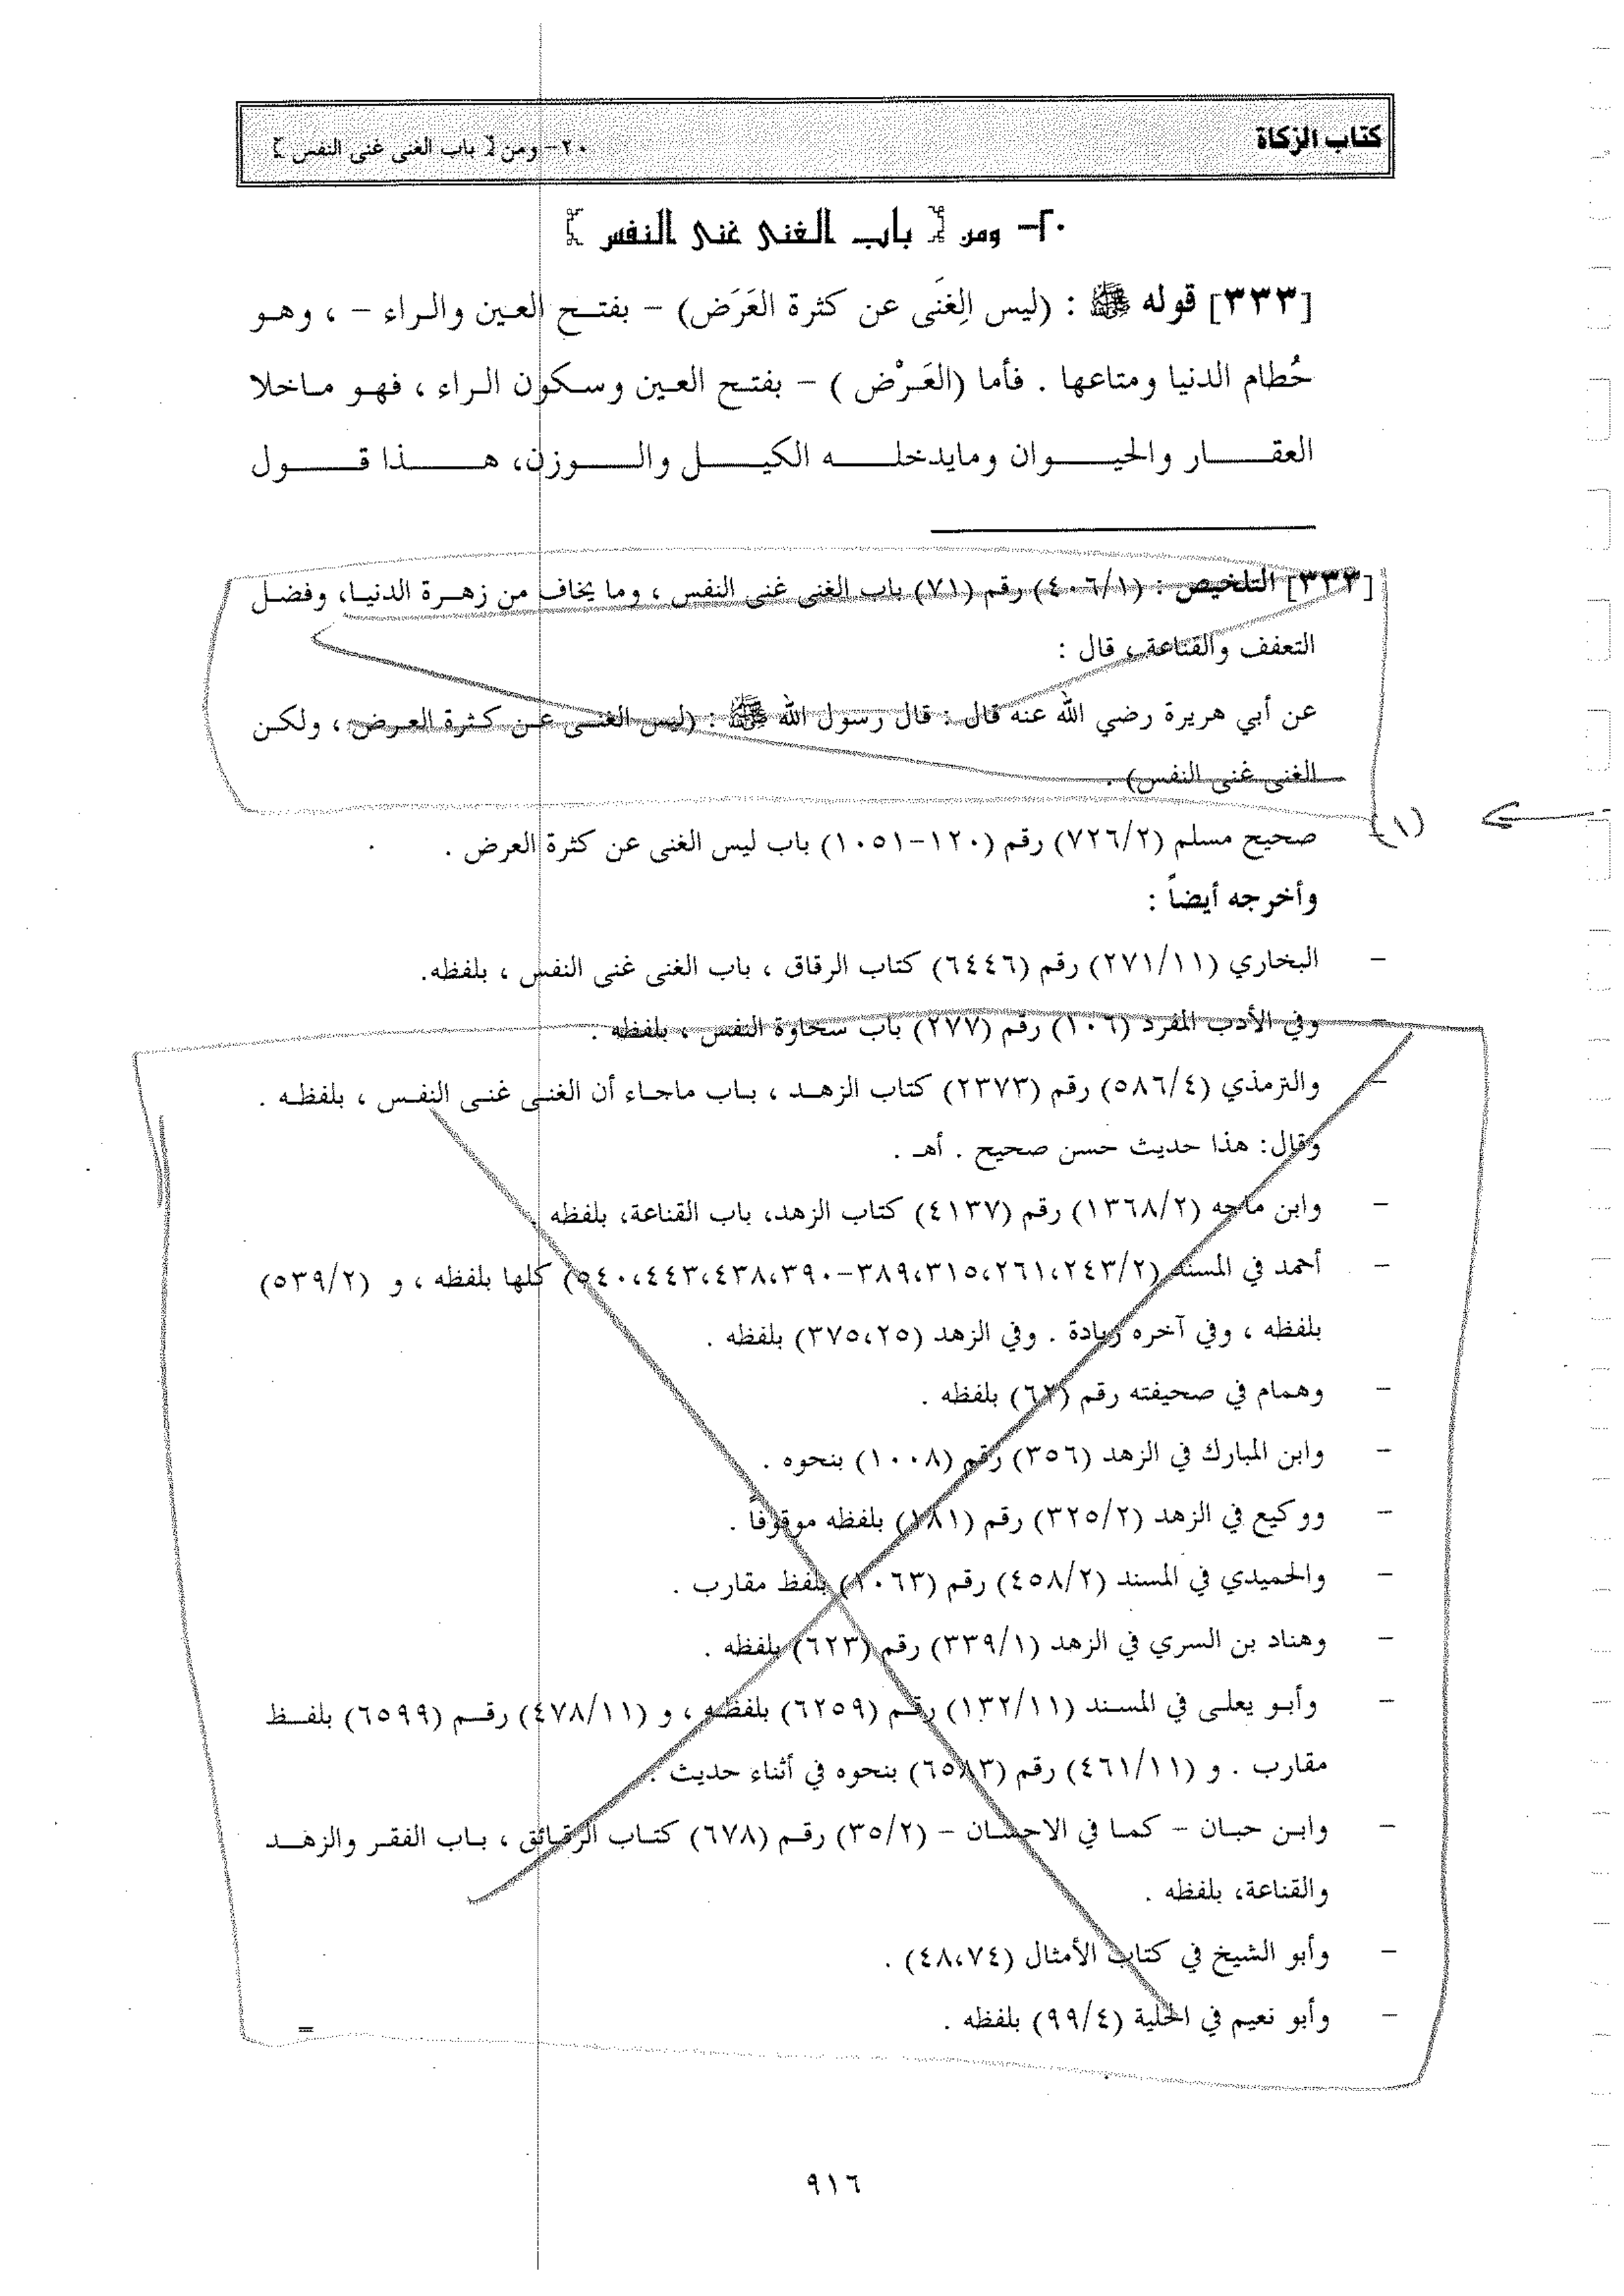 كتاب الزكاة
٢٠- ومن { باب الغنى غنى النفس }
٢٠- ومن { باب الغنى غنى النفس }
[٣٣٣] قوله ﷺ : (ليس الِغنَى عن كثرة العَرَض) – بفتح العين والراء – ، وهو
حُطام الدنيا ومتاعها . فأما (العَرْض ) – بفتح العين وسكون الراء ، فهو ماخلا
العقار والحيوان ومايدخله الكيل والوزن، هذا قول
[٣٣٣] التلخيص : (٤٠٦/١) رقم (٧١) باب الغنى غنى النفس ، وما يخاف من زهرة الدنيا، وفضل
التعفف والقناعة ، قال :
عن أبي هريرة رضي الله عنه قال : قال رسول الله ﷺ : (ليس الغنى عن كثرة العرض ، ولكن
الغنى غنى النفس) .
(١)
صحيح مسلم (٧٢٦/٢) رقم (١٢٠-١٠٥١) باب ليس الغنى عن كثرة العرض .
وأخرجه أيضاً :
– البخاري (٢٧١/١١) رقم (٦٤٤٦) كتاب الرقاق ، باب الغنى غنى النفس ، بلفظه.
– وفي الأدب المفرد (١٠٦) رقم (٢٧٧) باب سخاوة النفس ، بلفظه .
– والترمذي (٥٨٦/٤) رقم (٢٣٧٣) كتاب الزهد ، باب ماجاء أن الغنى غنى النفس ، بلفظه .
وقال: هذا حديث حسن صحيح . أهـ .
– وابن ماجه (١٣٦٨/٢) رقم (٤١٣٧) كتاب الزهد، باب القناعة، بلفظه .
– أحمد في المسند (٢٤٣/٢،٢٦١،٣١٥،٣٨٩-٣٩٠،٤٣٨،٤٤٣،٥٤٠) كلها بلفظه ، و (٥٣٩/٢)
بلفظه ، وفي آخره زيادة . وفي الزهد (٣٧٥،٢٥) بلفظه .
– وهمام في صحيفته رقم (٦٢) بلفظه .
– وابن المبارك في الزهد (٣٥٦) رقم (١٠٠٨) بنحوه .
– ووكيع في الزهد (٣٢٥/٢) رقم (١٨١) بلفظه موقوفاً .
– والحميدي في المسند (٤٥٨/٢) رقم (١٠٦٣) بلفظ مقارب .
– وهناد بن السري في الزهد (٣٣٩/١) رقم (٦٢٣) بلفظه .
– وأبو يعلى في المسند (١٣٢/١١) رقم (٦٢٥٩) بلفظه ، و (٤٧٨/١١) رقم (٦٥٩٩) بلفظ
مقارب . و (٤٦١/١١) رقم (٦٥٨٣) بنحوه في أثناء حديث .
– وابن حبان – كما في الاحسان – (٣٥/٢) رقم (٦٧٨) كتاب الرقائق ، باب الفقر والزهد
والقناعة، بلفظه .
– وأبو الشيخ في كتاب الأمثال (٤٨،٧٤) .
– وأبو نعيم في الحلية (٩٩/٤) بلفظه .
=
٩١٦